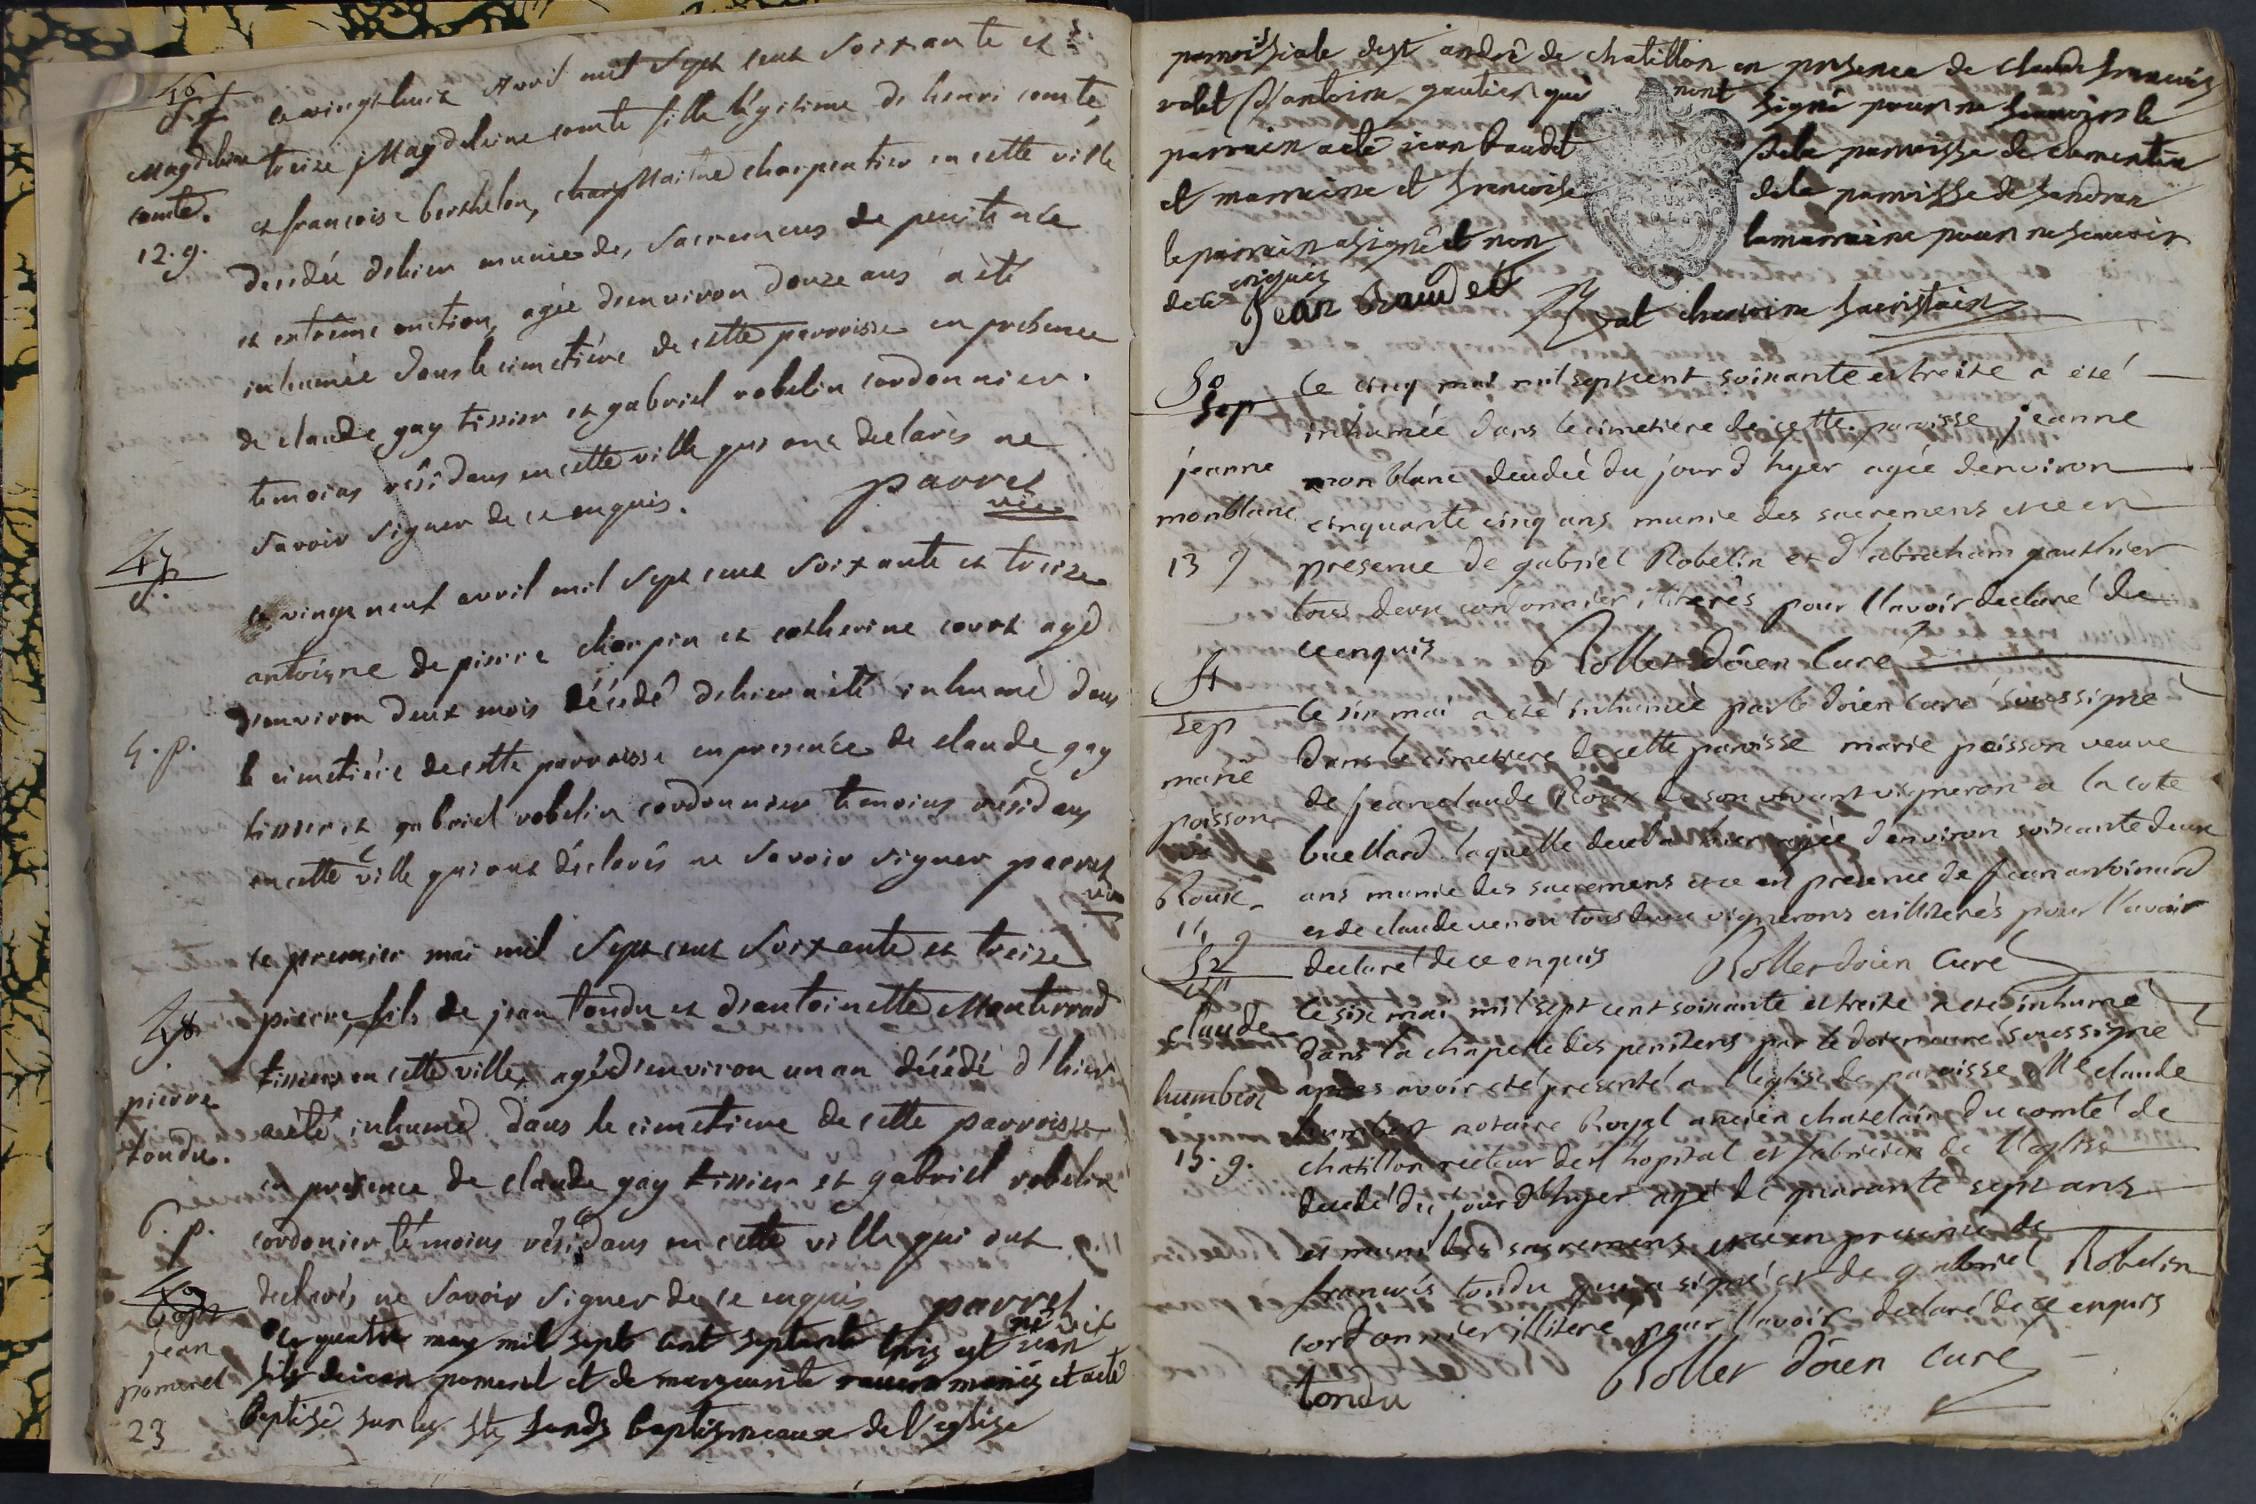 ce vingt huit Avril mil sept cent soixante et
treize Magdeleine comte fille légitime de henri comte,
Magdeleine
comte.
12. g.
et francoise berthelon, charp Maitre charpentier en cette ville
décédée d'hier munie des sacremens de penitence
et extrême onction, agée d'environ douze ans a été
inhumée dans le cimetiére de cette parroisse en présence
de claude gay tissier et gabriel robelin cordonnier.
temoins résidans en cette ville qui ont declarés ne
savoir signer de ce enquis. parret
vic.
47
ce vingt neuf avril mil sept cent soixante et treize
antoine de pierre charpin et catherine corot agé
d'environ deux mois décédé d'hier a été inhumé dans
4. p.
le cimetiére de cette parroisse en presence de claude gay
tissier et gabriel robelin cordonnier temoins résidans
en cette ville qui ont déclarés ne savoir signer parret
vic
ce premier mai mil sept cent soixante et treize
48
pierre, fils de jean tondu et d'antoinette Monterrad
tissier en cette ville, agé d'environ un an décédé d'hier
pierre
tondu.
a été inhumé dans le cimetiere de cette parroisse
en presence de claude gay tissier et gabriel robelin
6. p.
cordonier témoins résidans en cette ville qui ont
declarés ne savoir signer de ce enquis parret
vic
49
bapt
jean
pomerel
23
Le quatre may mil sept cent septante trois est né jean
fils de jean pomerel et de marguerite mariés et a eté
baptisé sur les sts fonds baptismeaux de l'eglise
parroissiale de st andré de chatillon en presence de claude francois
volet d'antoine gautier qui n'ont signé pour ne scavoir le
parrain a eté jean baudet de la parroisse de clementia
et marraine et francoise de la parroisse de sandran
le parrain a signé et non la marraine pour ne scavoir
de ce enquis
Jean Baudet chanoine sacristain
50
sep
le cinq mai mil sept cent soixante et treize a eté
inhumée dans le cimetiere de cette paroisse jeanne
jeanne
monblanc
13 g
monblanc decedée du jour d'hyer agée d'environ
cinquante cinq ans munie des sacremens et ce en
presence de gabriel Robelin et d'abraham gauthier
tous deux cordonnier illiterés pour l'avoir declaré de
ce enquis Rollet doïen curé
51
sep
marie
poisson
ve
Roux
11 g
le six mai a eté inhumée par le doïen curé soussigné
dans le cimetiere de cette paroisse marie poisson veuve
de jean claude Roux de son vivant vigneron a la cote
buellard laquelle deceda hier agée d'environ soixante deux
ans munie des sacremens et ce en presence de jean antoinard
et de claude venon tous deux vignerons et illiterés pour l'avoir
declaré de ce enquis Rollet doïen curé
52
sep
claude
humbert
15. g.
le six mai mil sept cent soixante et treize a eté inhumé
dans la chapelle des penitens par le doïen curé soussigné
apres avoir eté presenté a l'eglise de paroisse Me claude
humbert notaire Royal ancien chatelain du comté de
chatillon recteur de l'hopital et fabricien de l'eglise
decedé du jour d'hyer agé de quarante sept ans
et muni des sacremens et ce en presence de
francois tondu qui a signé et de gabriel Robelin
cordonnier illiteré pour l'avoir declaré de ce enquis
tondu Rollet doïen curé